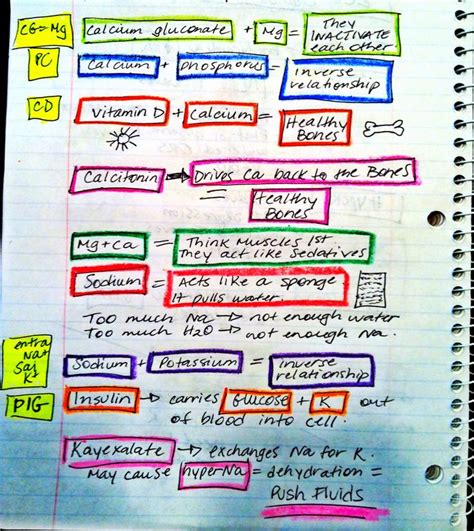 CG=Mg Calcium gluconate + Mg = They
INACTIVATE
each other
PC Calcium + phosphorus = Inverse
relationship
CD Vitamin D + Calcium = Healthy
Bones
Calcitonin → Drives Ca back to the Bones
= Healthy
Bones
Mg+Ca = Think Muscles 1st
They act like Sedatives
Sodium = Acts like a sponge
It pulls water.
Too much Na → not enough water
Too much H2O → not enough Na.
entra
Na+
Sal
K+
Sodium + Potassium = Inverse
relationship
PIG Insulin → carries Glucose + K out
of blood into cell.
Kayexalate → exchanges Na for K.
May cause hyperNa = dehydration =
Push Fluids